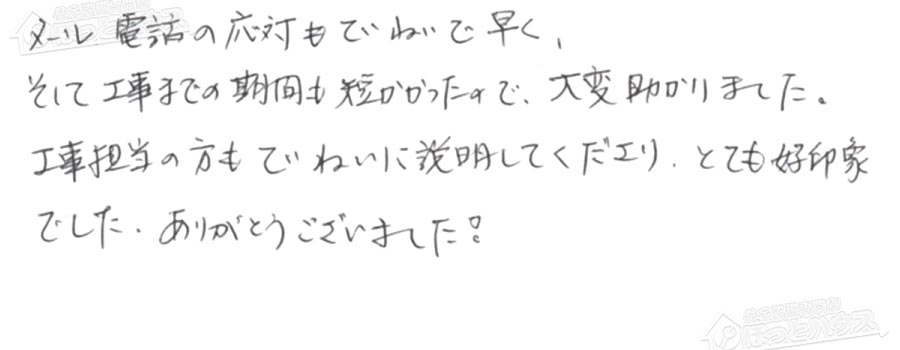 メール 電話の応対もていねいで早く、
そして工事までの期間も短かかったので、大変助かりました。
工事担当の方もていねいに説明してくださり、とても好印象
でした。ありがとうございました!
ほっとハウス